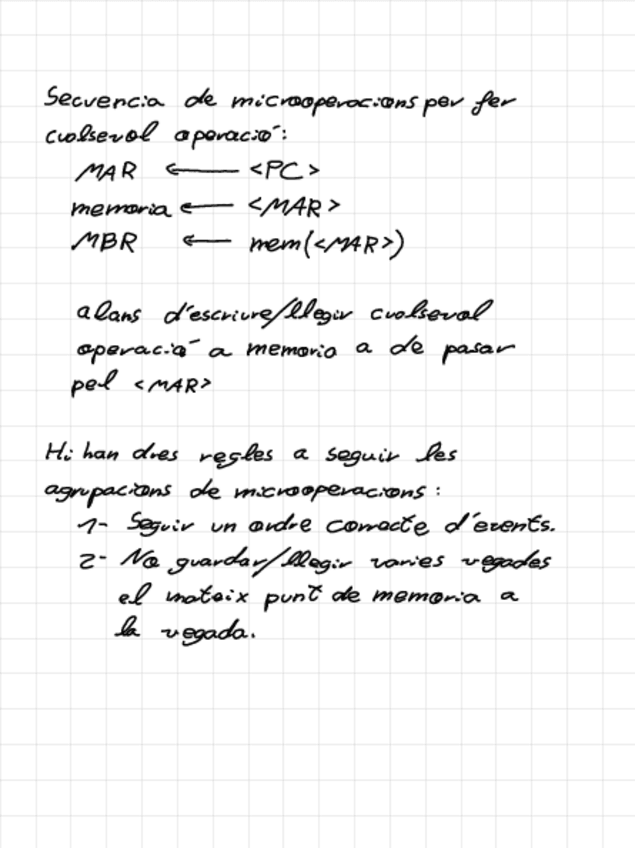 Secuencia de microoperacions per fer
cualseval operació:
MAR ← <PC>
memoria ← <MAR>
MBR ← mem(<MAR>)
alans d'escriure/llegir cualseval
operació a memoria a de pasar
pel <MAR>
Hi han dres regles a seguir les
agrupacions de microoperacions:
1- Seguir un ordre correcte d'events.
2- No guardar/llegir varies vegades
el mateix punt de memoria a
la vegada.